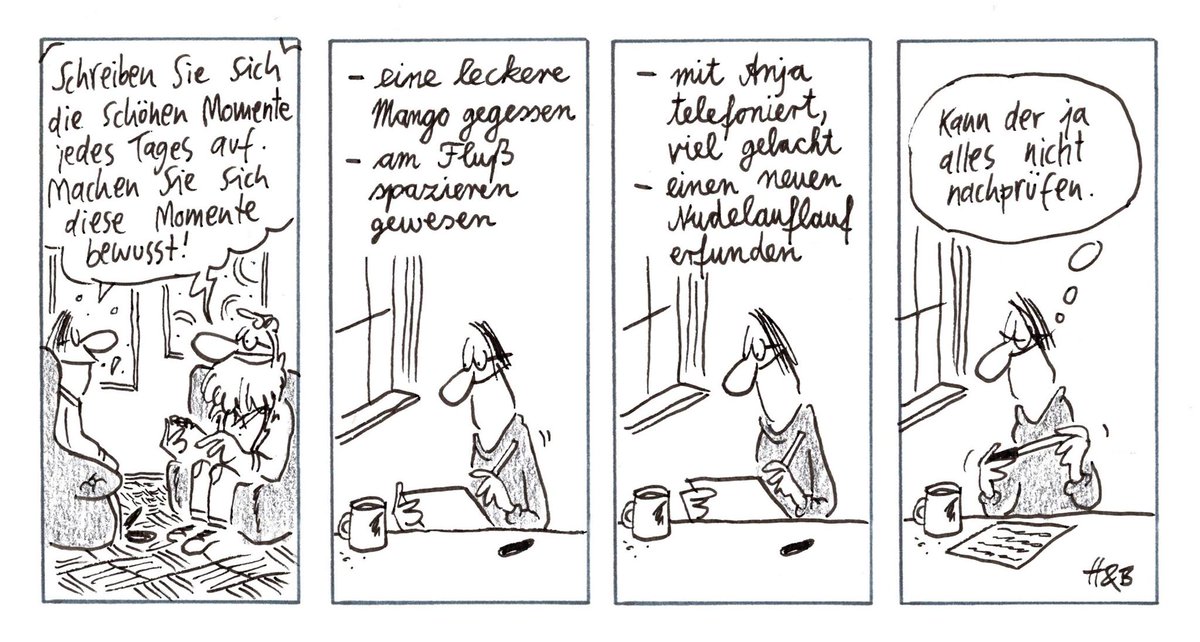 Schreiben Sie sich
die schönen Momente
jedes Tages auf.
Machen Sie sich
diese Momente
bewusst!
- eine leckere
Mango gegessen
- am Fluß
spazieren
gewesen
- mit Anja
telefoniert,
viel gelacht
- einen neuen
Nudelauflauf
erfunden
Kann der ja
alles nicht
nachprüfen.
H&B